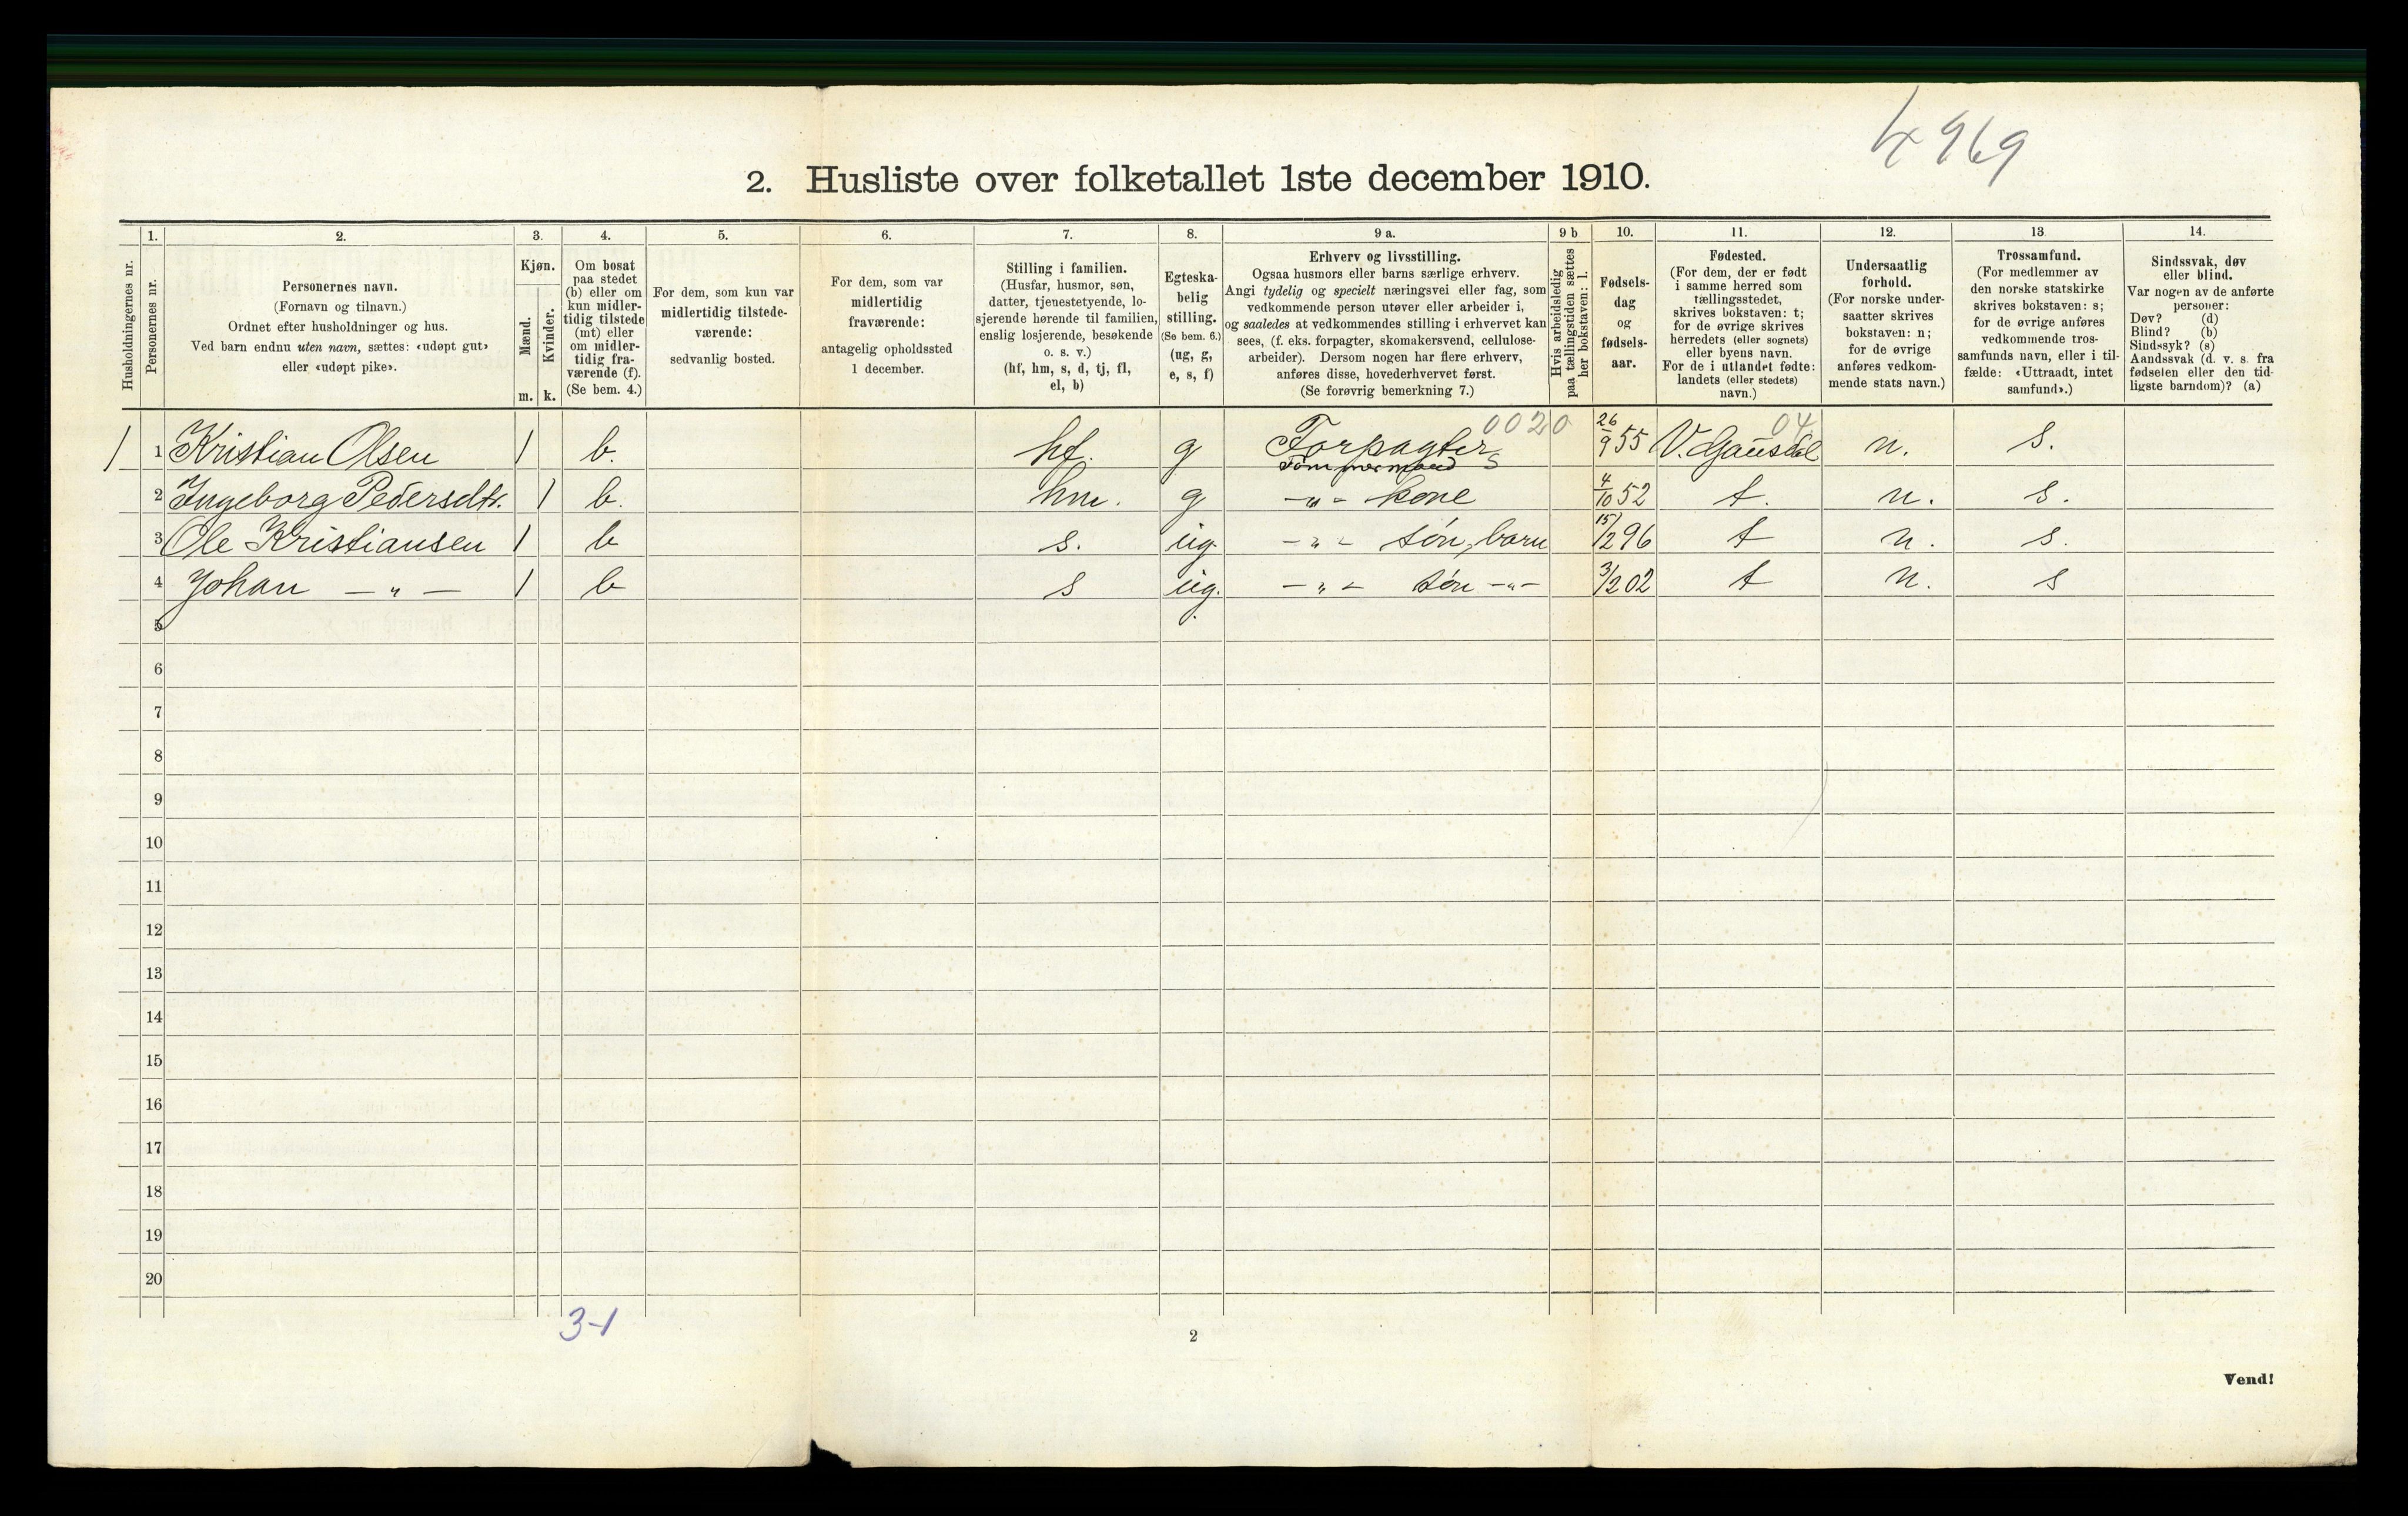 4969
2. Husliste over folketallet 1ste december 1910.
Husholdningernes nr.
1. Personernes nr.
2. Personernes navn.
(Fornavn og tilnavn.)
Ordnet efter husholdninger og hus.
Ved barn endnu uten navn, sættes: «udøpt gut»
eller «udøpt pike».
3. Kjøn.
Mænd. Kvinder.
m. k.
4. Om bosat
paa stedet
(b) eller om
kun midler-
tidig tilstede
(mt) eller
om midler-
tidig fra-
værende (f).
(Se bem. 4.)
5. For dem, som kun var
midlertidig tilstede-
værende:
sedvanlig bosted.
6. For dem, som var
midlertidig
fraværende:
antagelig opholdssted
1 december.
7. Stilling i familien.
(Husfar, husmor, søn,
datter, tjenestetyende, lo-
sjerende hørende til familien,
enslig losjerende, besøkende
o. s. v.)
(hf, hm, s, d, tj, fl,
el, b)
8. Egteska-
belig
stilling.
(Se bem. 6.)
(ug, g,
e, s, f)
9 a. Erhverv og livsstilling.
Ogsaa husmors eller barns særlige erhverv.
Angi tydelig og specielt næringsvei eller fag, som
vedkommende person utøver eller arbeider i,
og saaledes at vedkommendes stilling i erhvervet kan
sees, (f. eks. forpagter, skomakersvend, cellulose-
arbeider). Dersom nogen har flere erhverv,
anføres disse, hovederhvervet først.
(Se forøvrig bemerkning 7.)
9 b Hvis arbeidsledig
paa tællingstiden sættes
her bokstaven: l.
10. Fødsels-
dag
og
fødsels-
aar.
11. Fødested.
(For dem, der er født
i samme herred som
tællingsstedet,
skrives bokstaven: t;
for de øvrige skrives
herredets (eller sognets)
eller byens navn.
For de i utlandet fødte:
landets (eller stedets)
navn.)
12. Undersaatlig
forhold.
(For norske under-
saatter skrives
bokstaven: n;
for de øvrige
anføres vedkom-
mende stats navn.)
13 Trossamfund.
(For medlemmer av
den norske statskirke
skrives bokstaven: s;
for de øvrige anføres
vedkommende tros-
samfunds navn, eller i til-
fælde: «Uttraadt, intet
samfund».)
14. Sindssvak, døv
eller blind.
Var nogen av de anførte
personer:
Døv? (d)
Blind? (b)
Sindssyk? (s)
Aandssvak (d. v. s. fra
fødselen eller den tid-
ligste barndom)? (a)
0020 04
1 1 Kristian Olsen 1 b. hf. g Forpagter 26/9 55 V. Gausdal n. s.
Tømmermand s
2 Ingeborg Pedersdtr. 1 b. hm. g -"- kone 4/10 52 t. n. s.
3 Ole Kristiansen 1 b s. ug. -"- søn, barn 15/2 96 t n. s.
4 Johan -"- 1 b s ug. -"- søn -"- 3/2 02 t n. s
5
6
7
8
9
10
11
12
13
14
15
16
17
18
19
20
3-1
2
Vend!